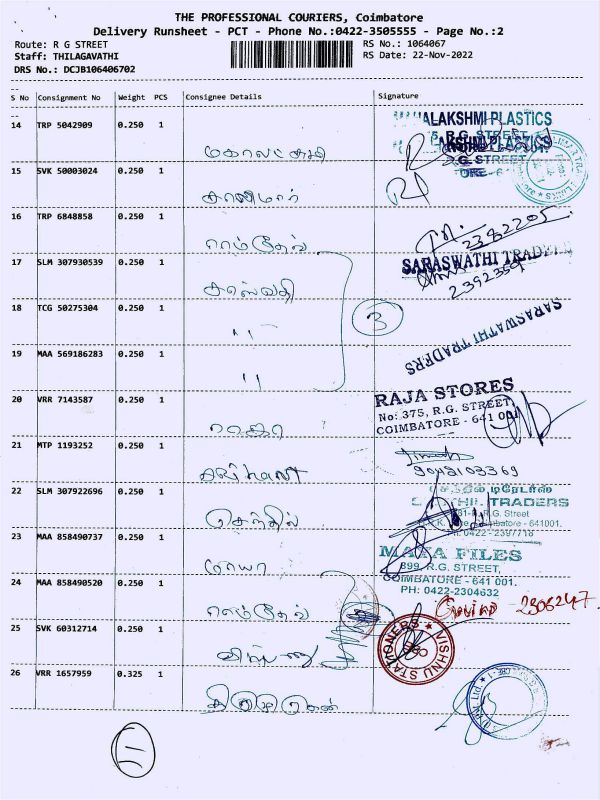 THE PROFESSIONAL COURIERS, Coimbatore
Delivery Runsheet - PCT - Phone No.:0422-3505555 - Page No.:2
Route: R G STREET
RS No.: 1064067
Staff: THILAGAVATHI
RS Date: 22-Nov-2022
DRS No.: DCJB106406702
S No Consignment No Weight PCS Consignee Details Signature
14 TRP 5042909 0.250 1
MAHALAKSHMI PLASTICS
R.G. STREET
15 SVK 50003024 0.250 1
16 TRP 6848858 0.250 1 ராம்தேவ்
2382205
17 SLM 307930539 0.250 1 சரஸ்வதி
SARASWATHI TRADERS
2392359
18 TCG 50275304 0.250 1 "
3
SARASWATHI TRADERS
19 MAA 569186283 0.250 1 "
20 VRR 7143587 0.250 1 ராஜா
RAJA STORES
No: 375, R.G. STREET,
COIMBATORE - 641 001
21 MTP 1193252 0.250 1
9043103369
22 SLM 307922696 0.250 1 செந்தில்
செந்தில் டிரேடர்ஸ்
SENTHIL TRADERS
R.G. Street
Coimbatore - 641001.
Ph: 0422 - 2397718
23 MAA 858490737 0.250 1 மாயா
MAYA FILES
899, R.G. STREET,
COIMBATORE - 641 001.
PH: 0422-2304632
24 MAA 858490520 0.250 1 ராம்தேவ்
Govind - 2306247
25 SVK 60312714 0.250 1 விஷ்ணு
VISHNU STATIONERS
26 VRR 1657959 0.325 1
11